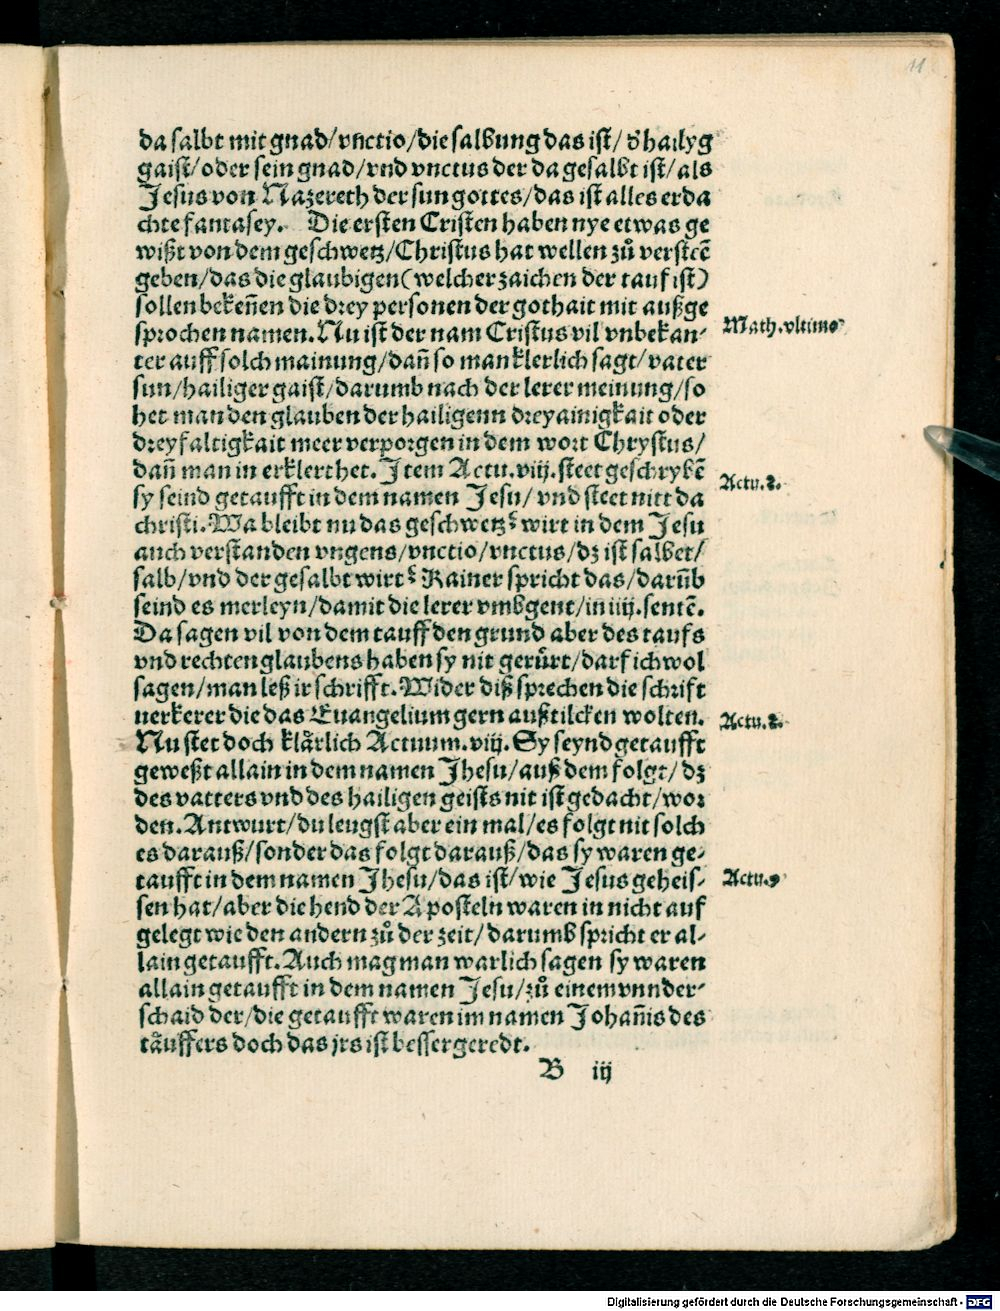 11
da salbt mit gnad/vnctio/die salbung das ist/ d' hailyg
gaist/oder sein gnad/vnd vnctus der da gesalbt ist/als
Jesus von Nazereth der sun gottes/das ist alles erda
chte fantasey. Die ersten Cristen haben nye etwas ge
wißt von dem geschwetz/Christus hat wellen zů versteẽ
geben/das die glaubigen (welcher zaichen der tauf ist)
sollen bekeñen die drey personen der gothait mit außge
sprochen namen. Nu ist der nam Cristus vil vnbekan-
ter auff solch mainung/dañ so man klerlich sagt/vater
sun/hailiger gaist/darumb nach der lerer meinung/so
het man den glauben der hailigenn dreyainigkait oder
dreyfaltigkait meer verporgen in dem wort Chrystus/
dañ man in erklert het. Item Actu.viij. steet geschrybẽ
sy seind getaufft in dem namen Jesu/ vnd steet nitt da
christi. Wa bleibt nu das geschwetz? wirt in dem Jesu
auch verstanden vngens/vnctio/vnctus/dz ist salber/
salb/vnd der gesalbt wirt? Kainer spricht das/darũb
seind es merleyn/damit die lerer vmbgent/in iiij.sentẽ.
Da sagen vil von dem tauff den grund aber des taufs
vnd rechten glaubens haben sy nit gerůrt/darf ich wol
sagen/man leß ir schrifft. Wider diß sprechen die schrift
uerkerer die das Euangelium gern außtilcken wolten.
Nu stet doch klårlich Actuum.viij. Sy seynd getaufft
geweßt allain in dem namen Jhesu/auß dem folgt/ dz
des vatters vnd des hailigen geists nit ist gedacht/wor
den. Antwurt/du leugst aber ein mal/es folgt nit solch
es darauß/sonder das folgt darauß/das sy waren ge-
taufft in dem namen Jhesu/das ist/wie Jesus geheis-
sen hat/aber die hend der Aposteln waren in nicht auf
gelegt wie den andern zů der zeit/darumb spricht er al-
lain getaufft. Auch mag man warlich sagen sy waren
allain getaufft in dem namen Jesu/zů einem vnnder-
schaid der/die getaufft waren im namen Johañis des
tåuffers doch das jrs ist besser geredt.
B iij
Math.vltimo
Actu.8.
Actu.8.
Actu.9
Digitalisierung gefördert durch die Deutsche Forschungsgemeinschaft - DFG